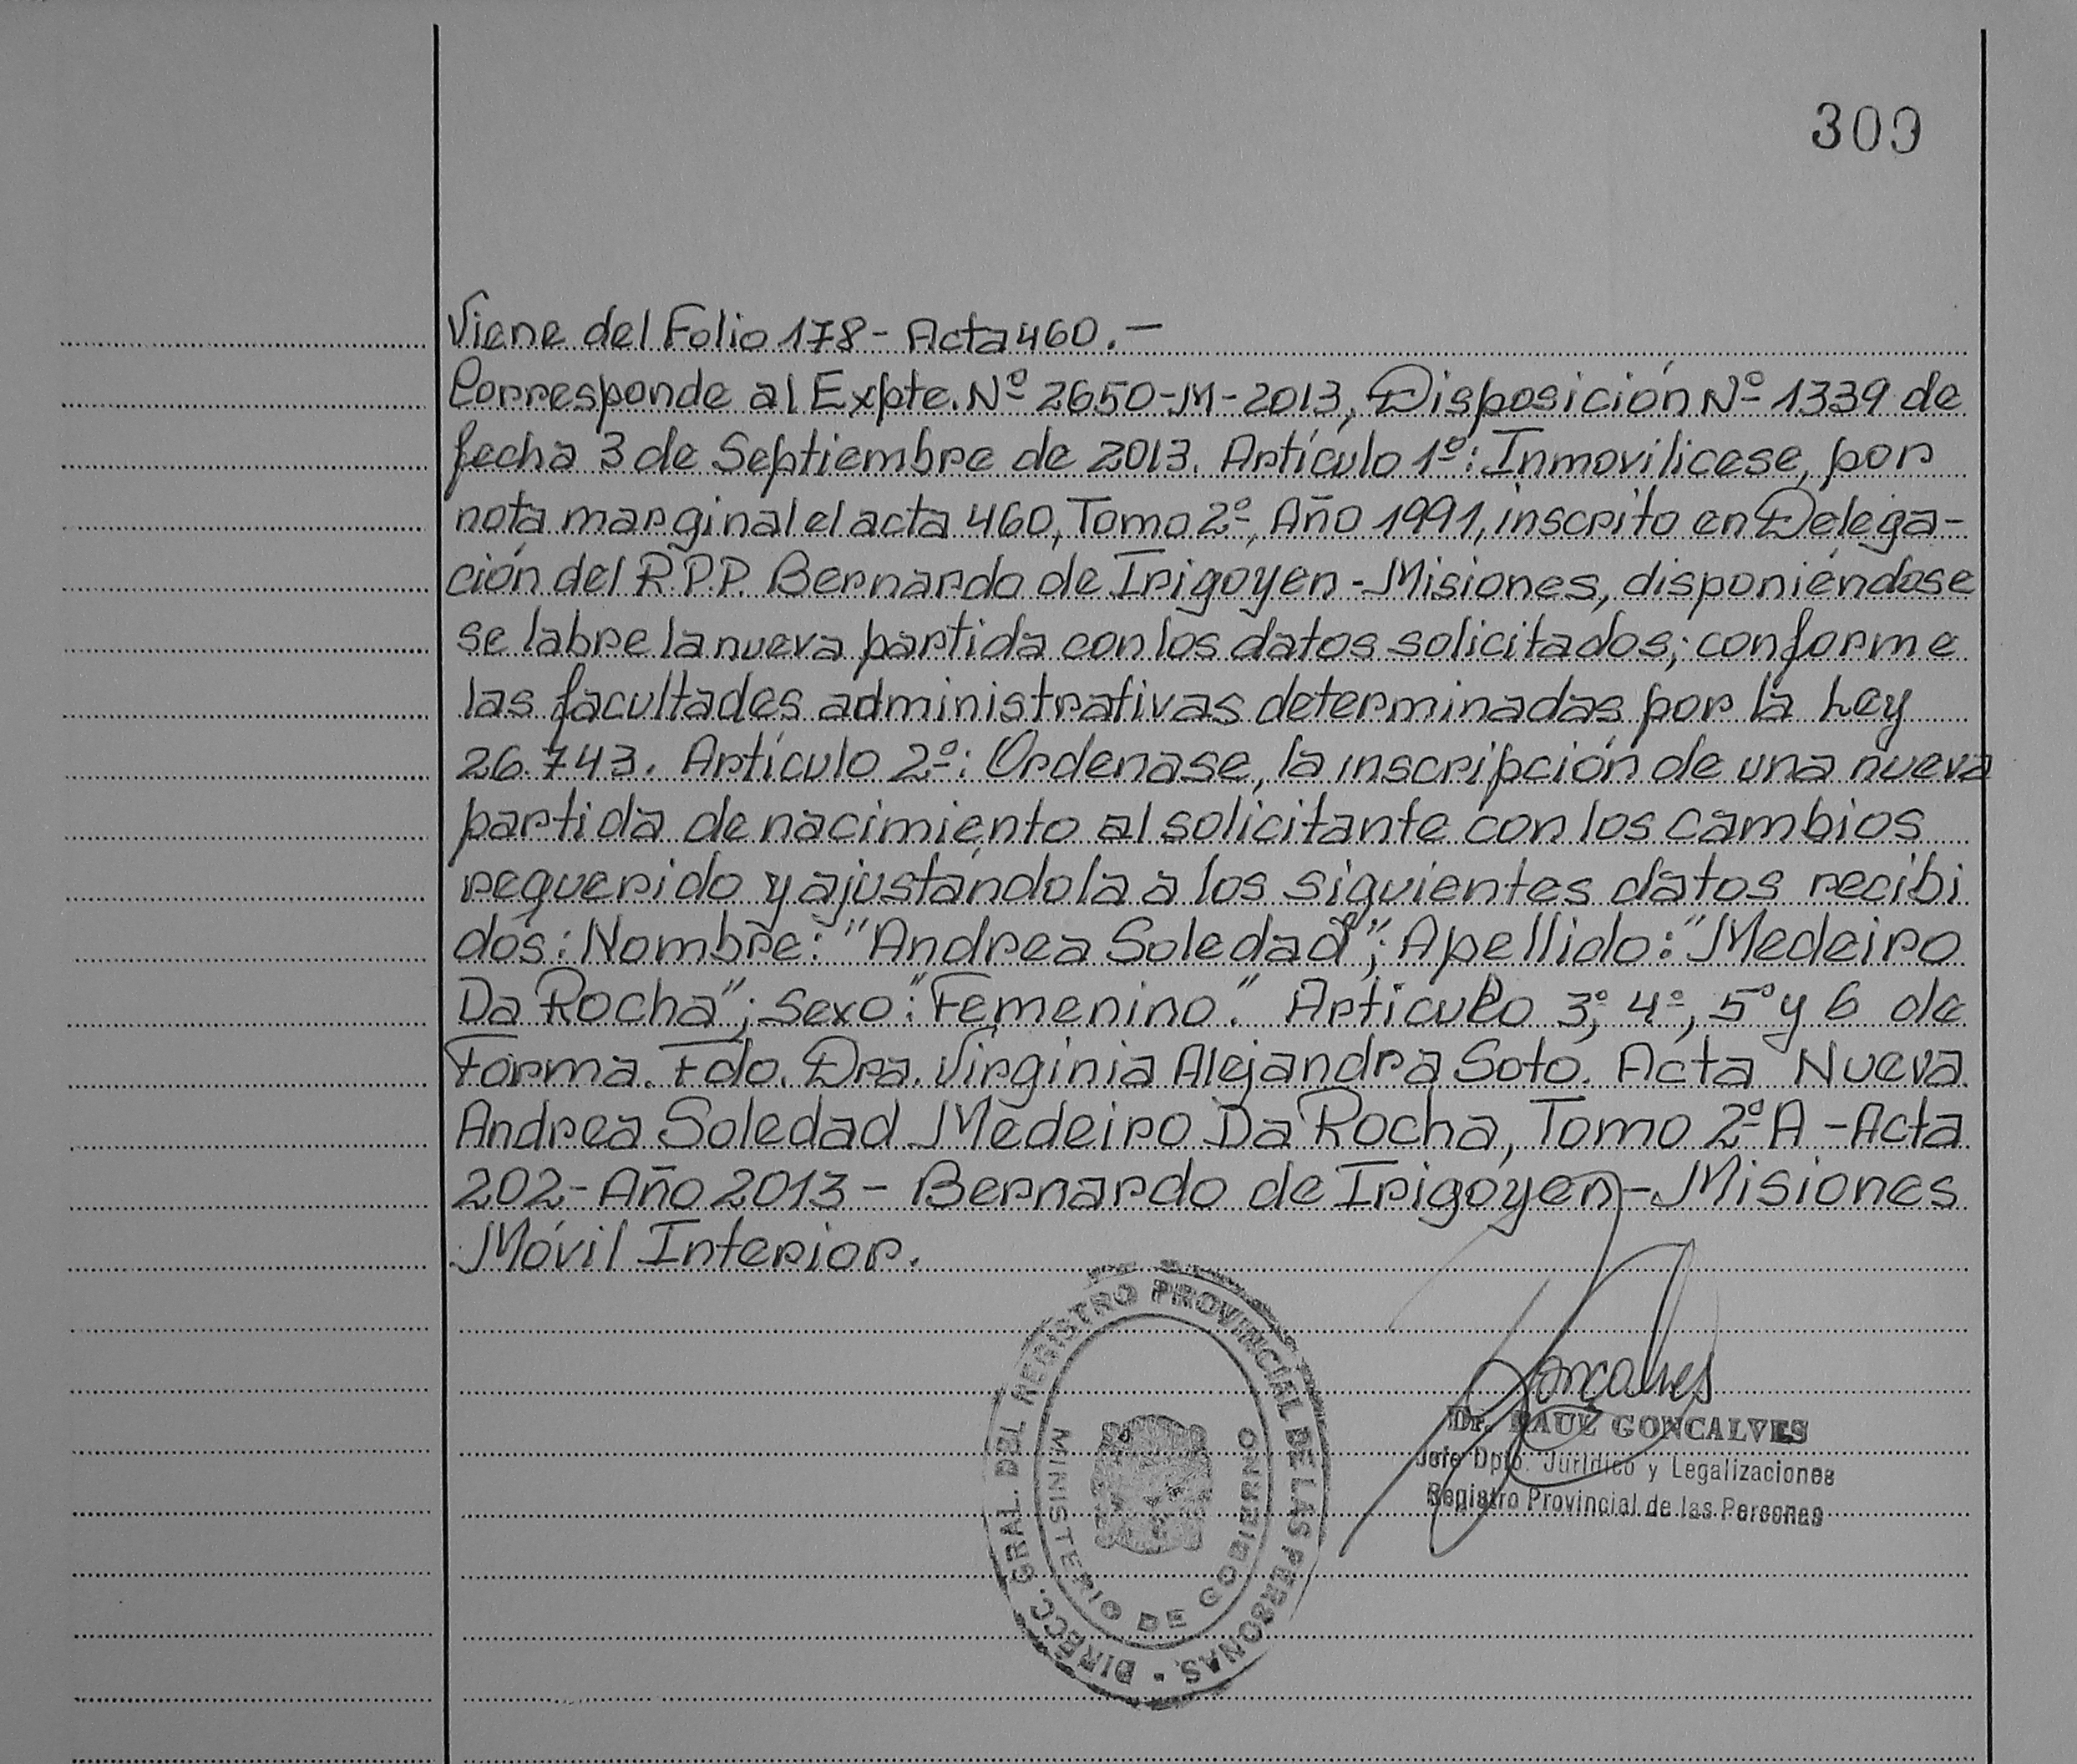 309
Viene del Folio 178- Acta 460.-
Corresponde al Expte. Nº 2650-M-2013, Disposición Nº 1339 de
fecha 3 de Septiembre de 2013. Artículo 1º: Inmovilicese, por
nota marginal el acta 460, Tomo 2º, Año 1991, inscrito en Delega-
ción del R.P.P. Bernardo de Irigoyen - Misiones, disponiéndose
se labre la nueva partida con los datos solicitados; conforme
las facultades administrativas determinadas por la Ley
26.743. Artículo 2º: Ordenase, la inscripción de una nueva
partida de nacimiento al solicitante con los cambios
requerido y ajustándola a los siguientes datos recibi
dos: Nombre: "Andrea Soledad"; Apellido: "Medeiro
Da Rocha"; Sexo: "Femenino". Articulo 3º, 4º, 5º y 6 de
Forma. Fdo. Dra. Virginia Alejandra Soto. Acta Nueva
Andrea Soledad Medeiro Da Rocha, Tomo 2º A - Acta
202- Año 2013 - Bernardo de Irigoyen - Misiones
Móvil Interior.
DIRECC. GRAL. DEL REGISTRO PROVINCIAL DE LAS PERSONAS -
MINISTERIO DE GOBIERNO
Goncalves
Dr. RAUL GONCALVES
Jefe Dpto. Jurídico y Legalizaciones
Registro Provincial de las Personas